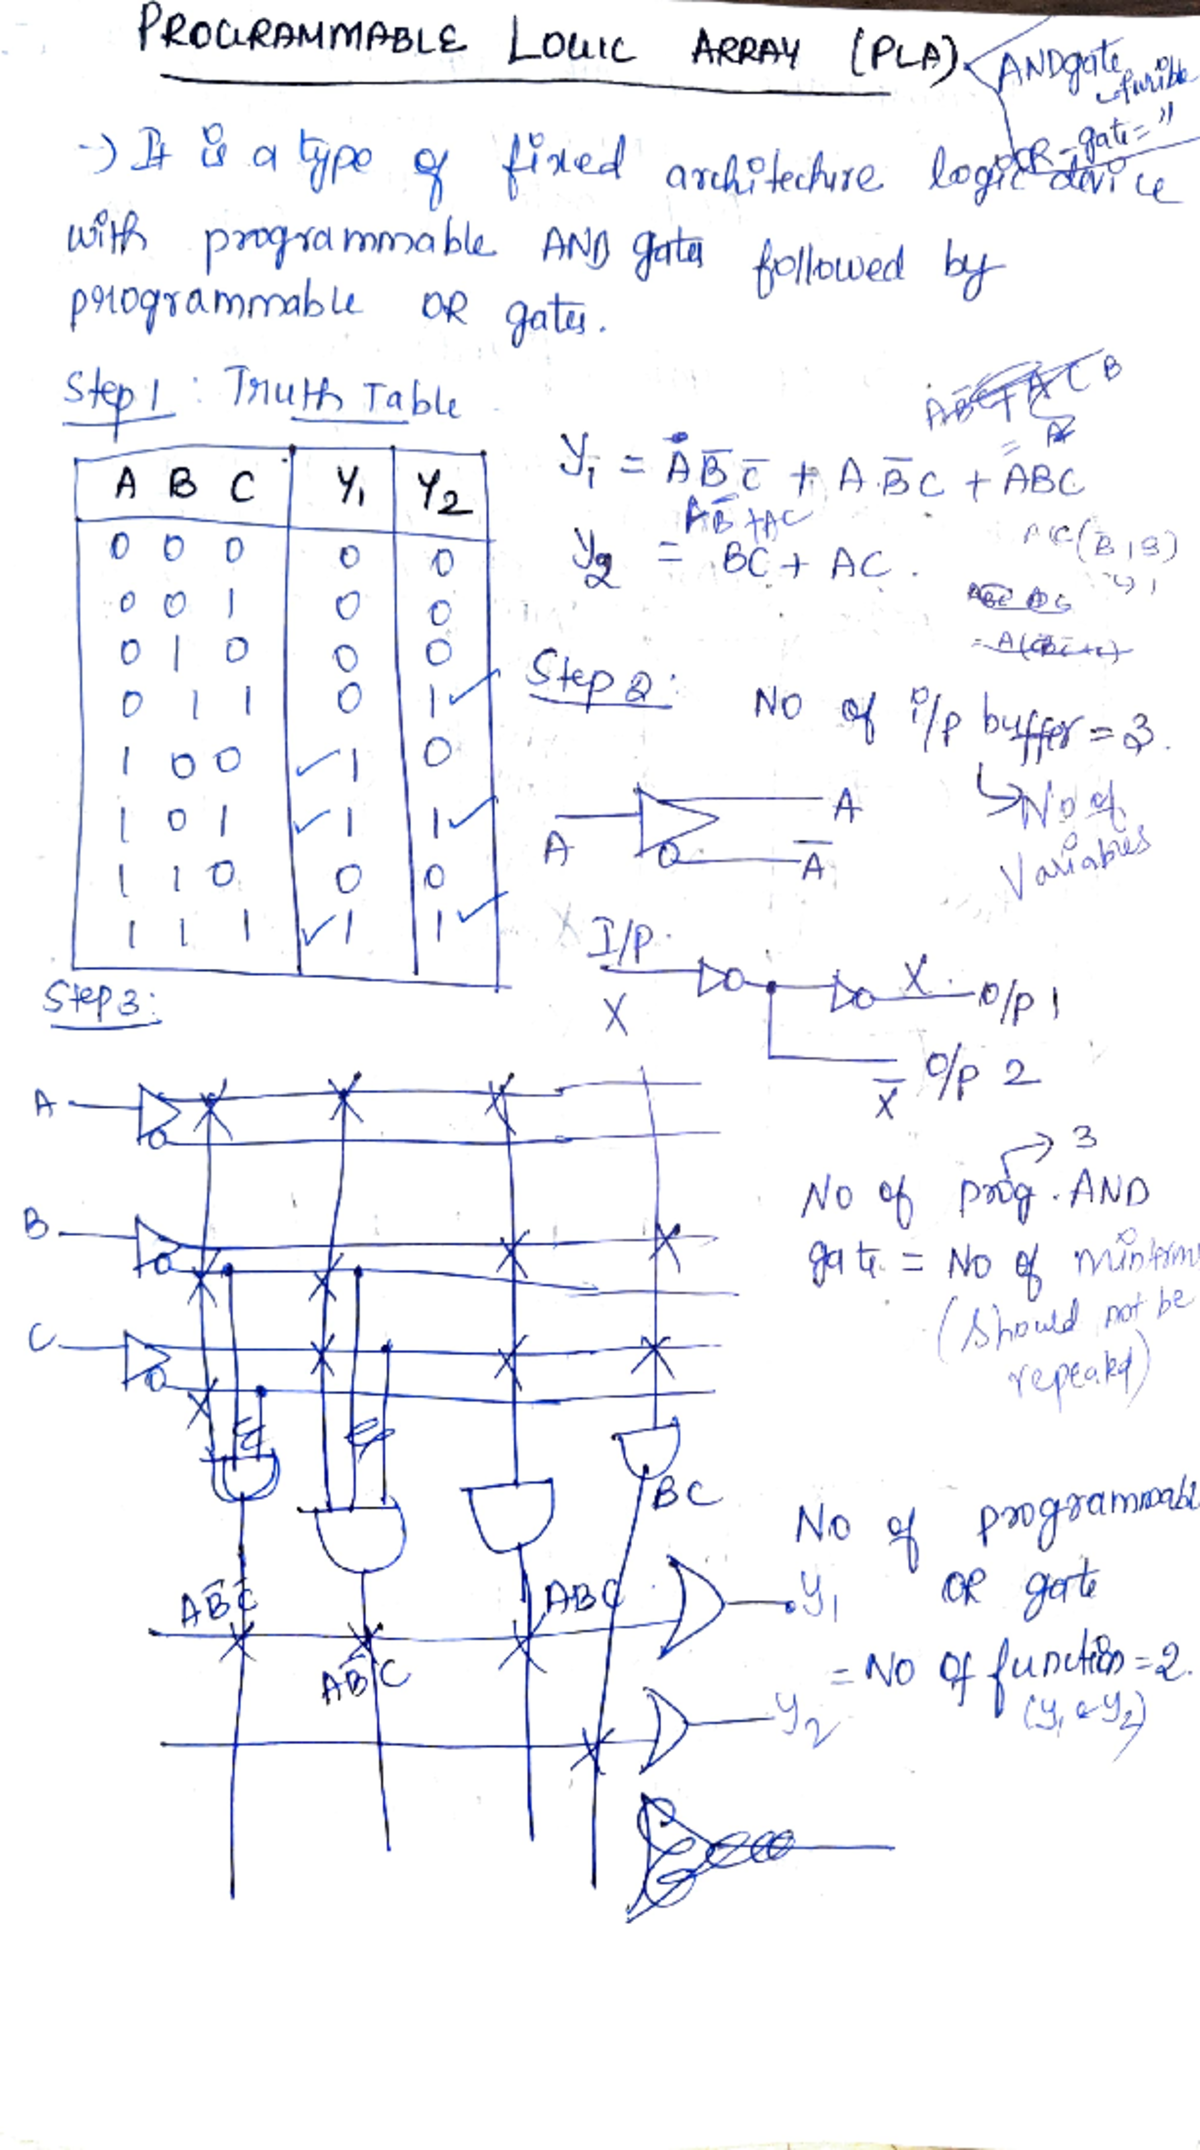 PROGRAMMABLE LOGIC ARRAY (PLA)
ANDgate
OR-gate = "
-) It is a type of fixed architecture logic device
with programmable AND gates followed by
programmable OR gates.
Step 1 : Truth Table
A B C Y₁ Y2
0 0 0 0 0
0 0 1 0 0
0 1 0 0 0
0 1 1 0 1✓
1 0 0 ✓1 0
1 0 1 ✓1 1✓
1 1 0 0 0
1 1 1 ✓1 1✓
Y₁ = AB̅C̅ + A.B̅C + ABC
AB̅ + AC
Y2 = BC + AC.
Step 2: No of i/p buffer = 3.
↳ No of
Variables
A
A
A̅
I/P
X
X
O/P 1
O/P 2
X̅
Step 3:
A
B
C
3
No of prog. AND
gate = No of minterms
(should not be
repeated)
BC
AB̅C̅
AB̅C
ABC
Y₁
Y2
No of programmabl
OR gate
= No of function = 2.
(Y₁ & Y2)